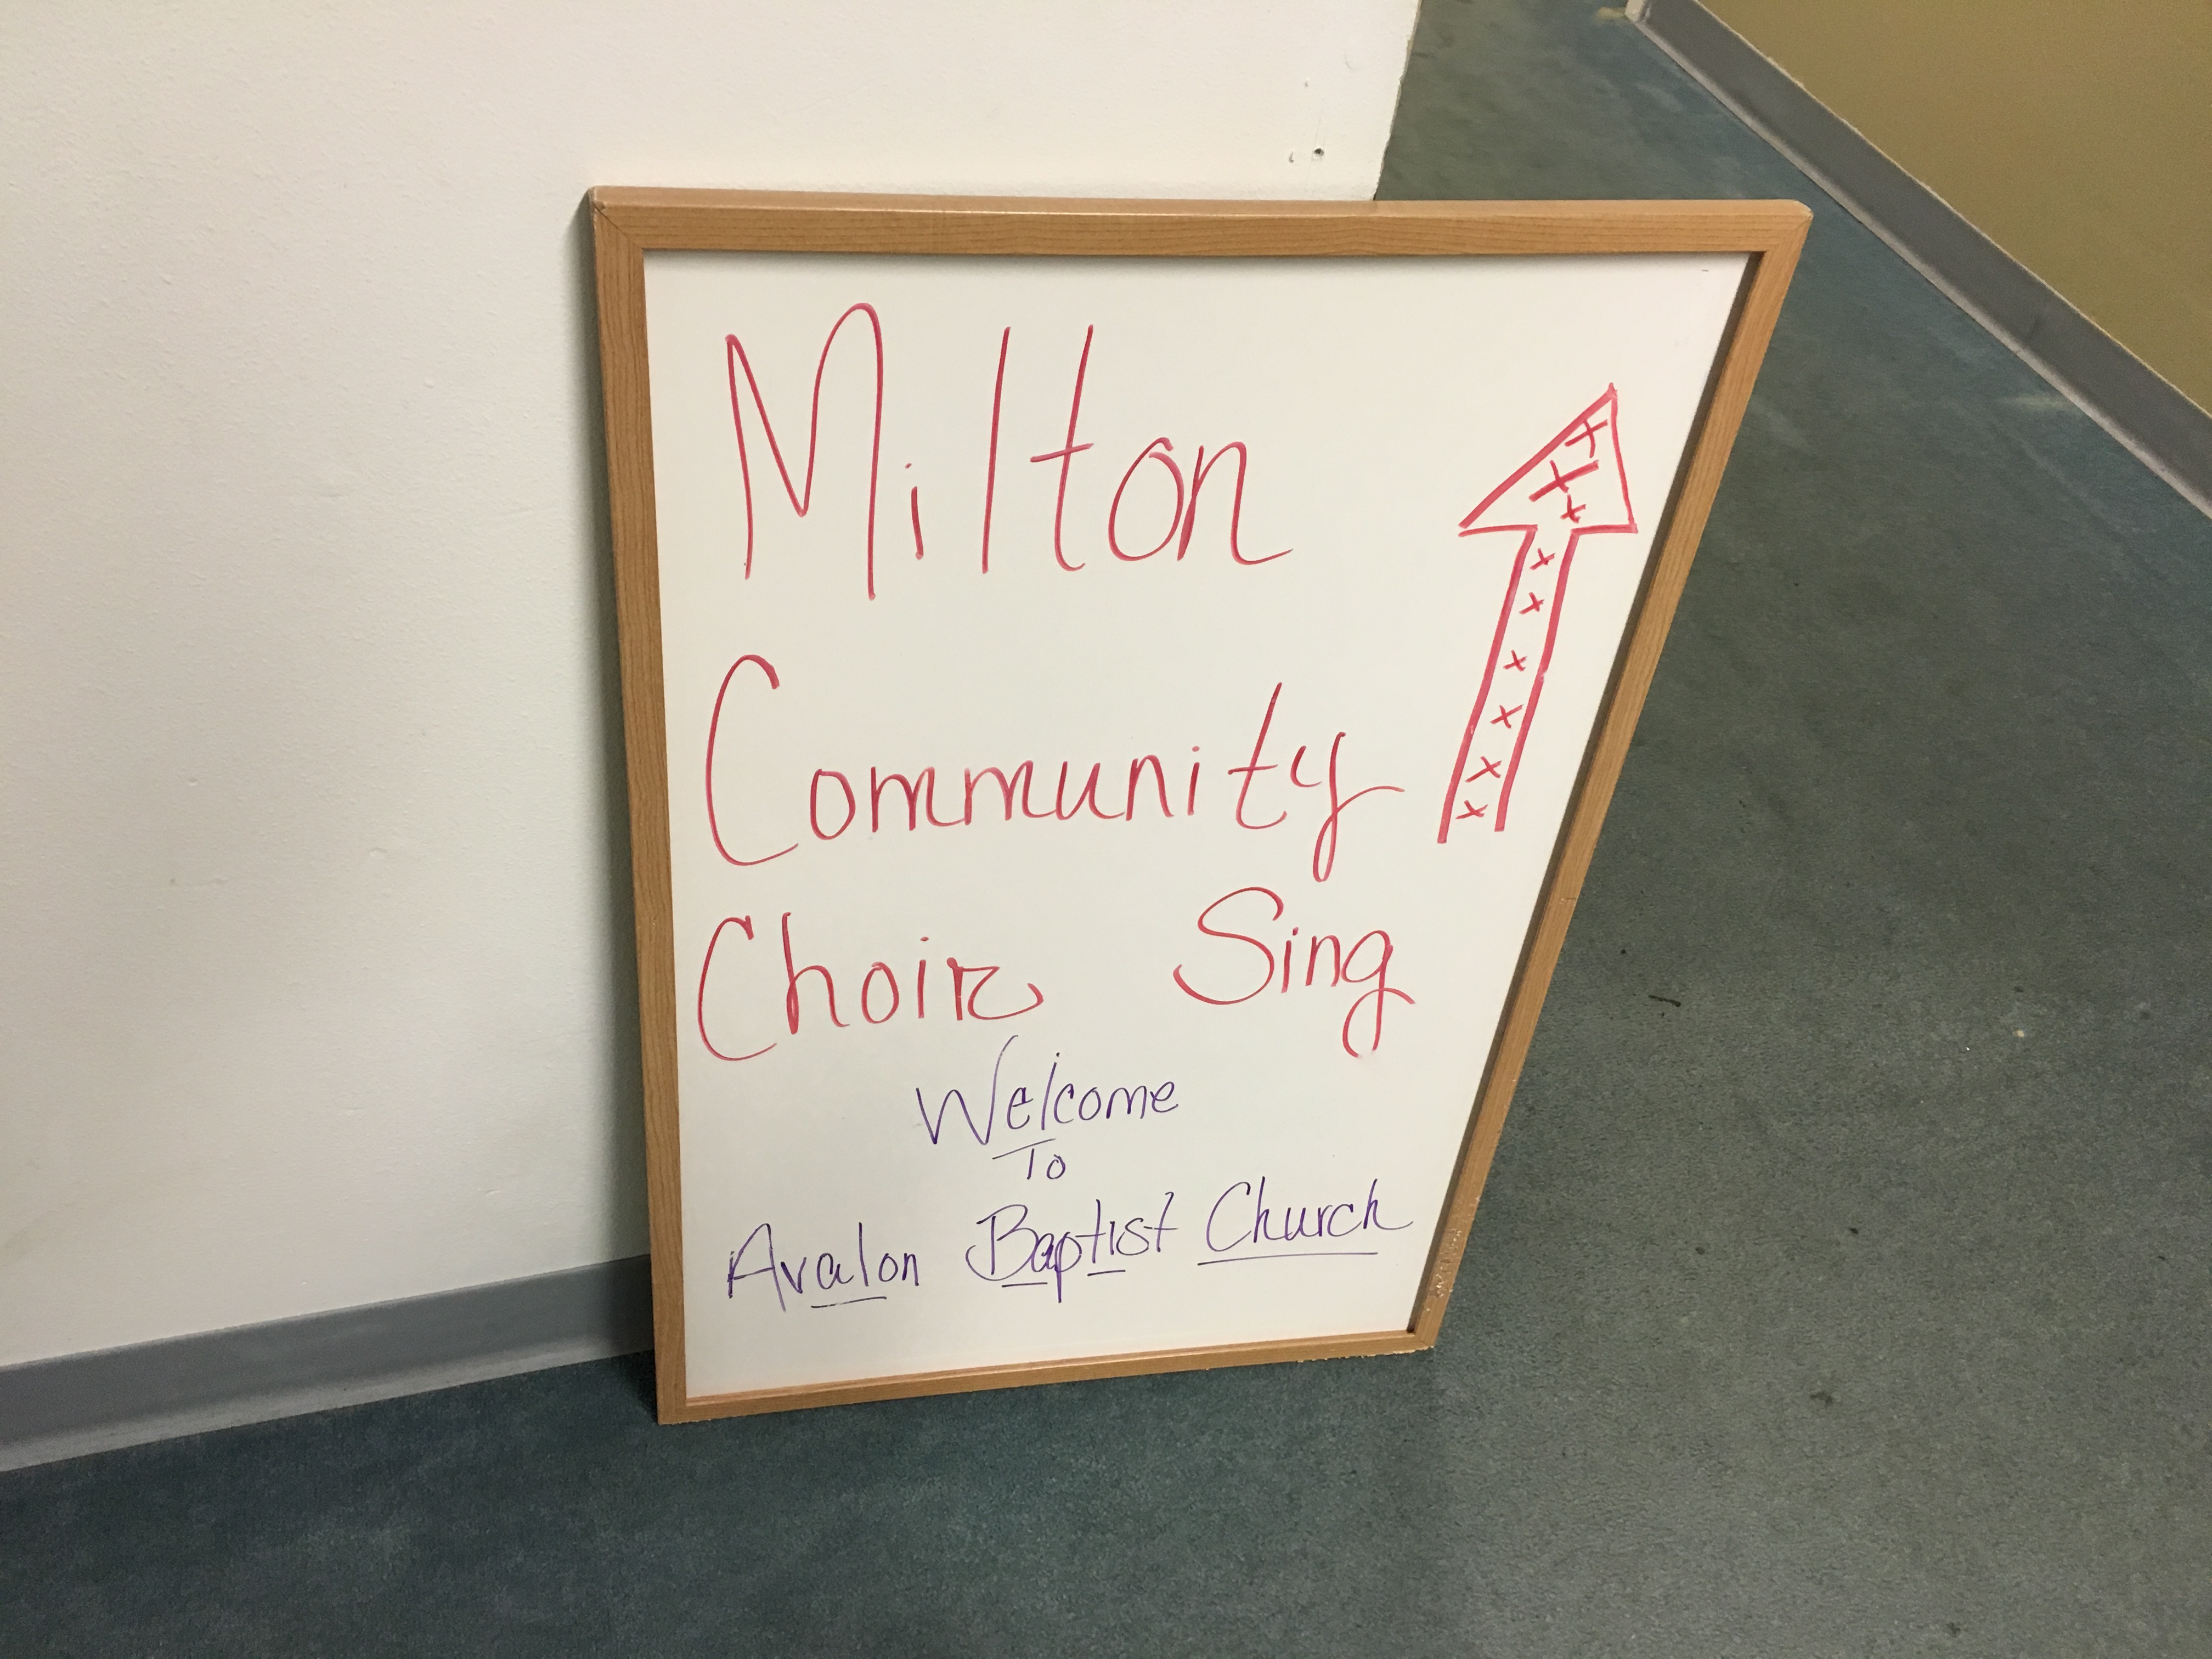 Milton
Community
Choir Sing
Welcome
To
Avalon Baptist Church